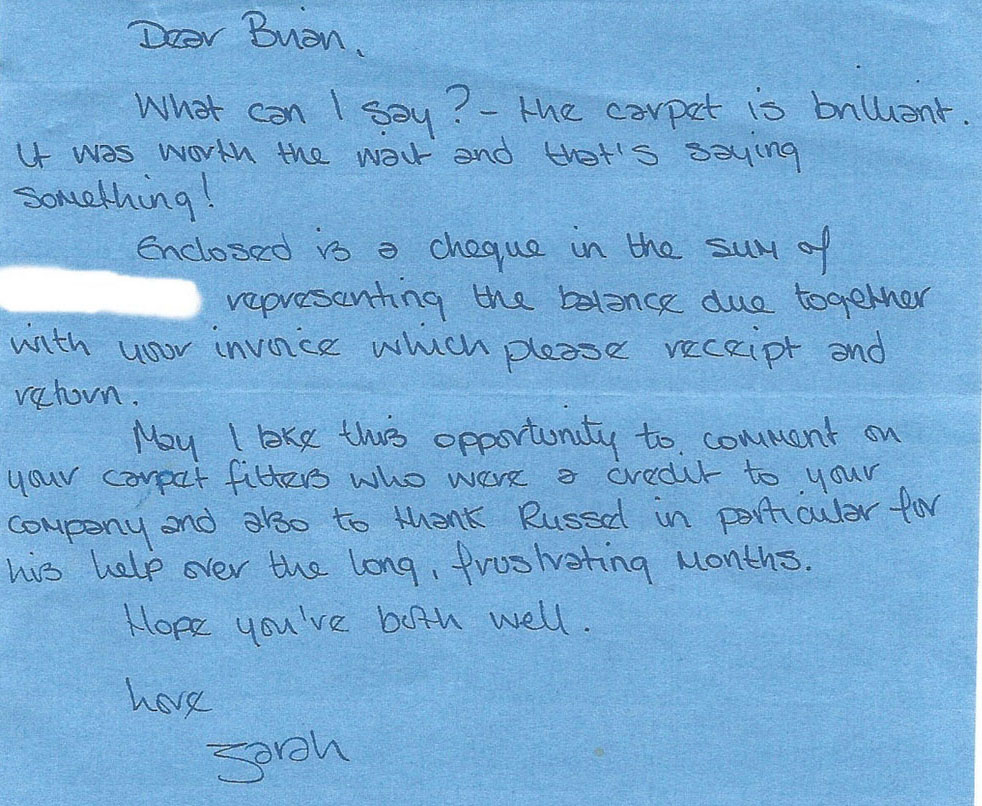 Dear Brian,
What can I say? - the carpet is brilliant.
It was worth the wait and that's saying
something!
Enclosed is a cheque in the sum of
representing the balance due together
with your invoice which please receipt and
return.
May I take this opportunity to comment on
your carpet fitters who were a credit to your
company and also to thank Russel in particular for
his help over the long, frustrating months.
Hope you've both well.
Love
Sarah